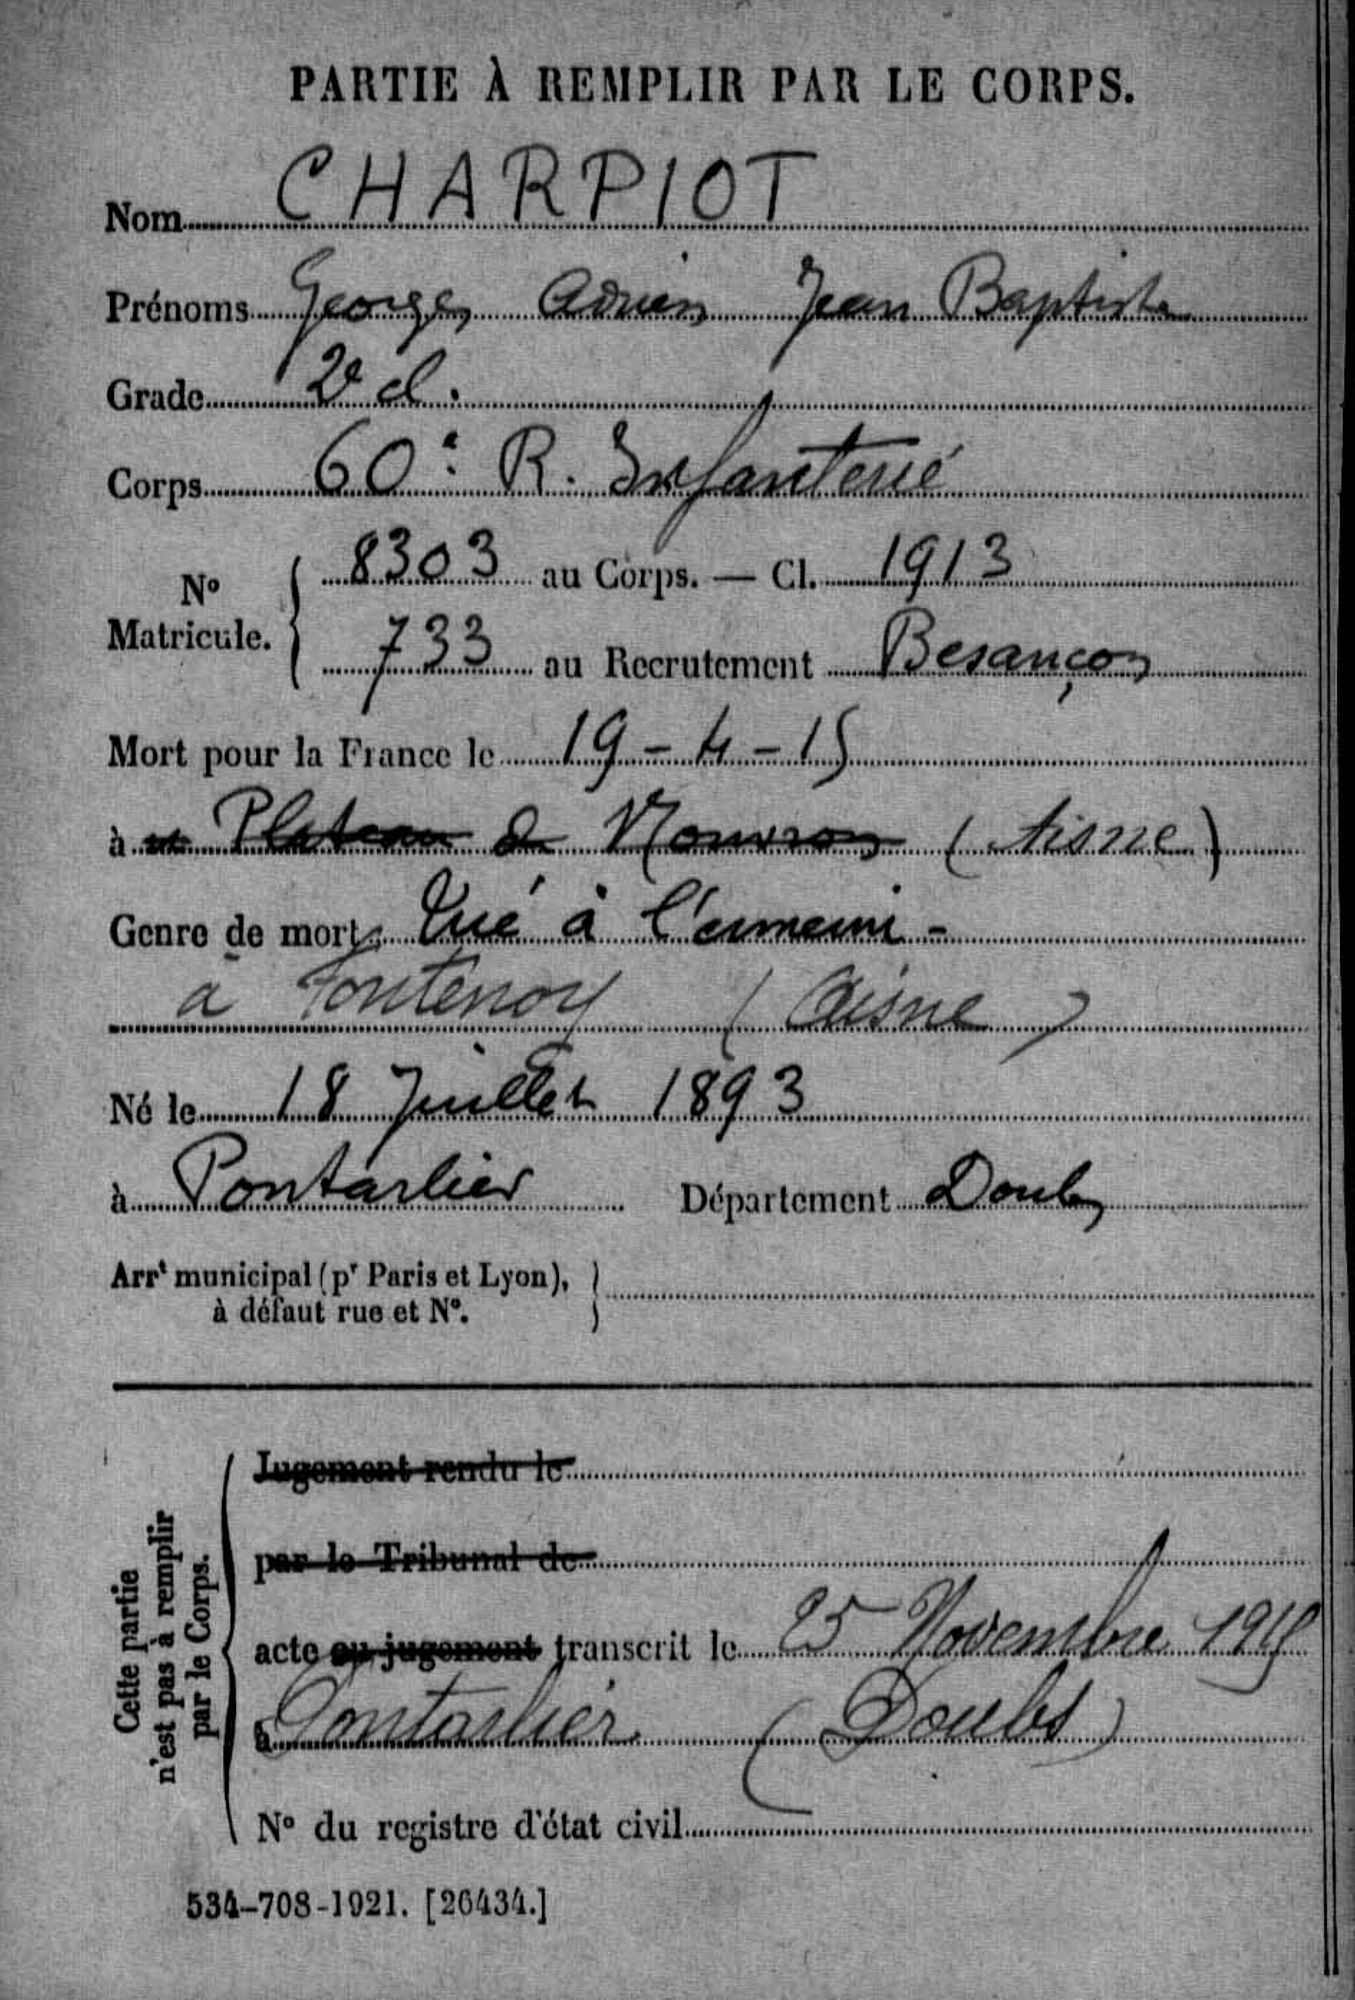 PARTIE À REMPLIR PAR LE CORPS.
Nom CHARPIOT
Prénoms Georges Adrien Jean Baptiste
Grade 2e cl.
Corps 60e R. Infanterie
No Matricule. 8303 au Corps. — Cl. 1913
733 au Recrutement Besançon
Mort pour la France le 19-4-15
à Plateau de Nouvron (Aisne)
Genre de mort : Tué à l'ennemi -
à Fontenoy (Aisne)
Né le 18 Juillet 1893
à Pontarlier Département Doubs
Arrt municipal (pr Paris et Lyon),
à défaut rue et No.
Cette partie
n'est pas à remplir
par le Corps.
Jugement rendu le
par le Tribunal de
acte ou jugement transcrit le 25 Novembre 1915
à Pontarlier (Doubs)
No du registre d'état civil
534-708-1921. [26434.]